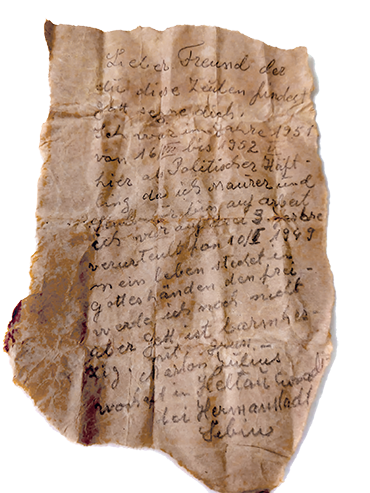 Lieber Freund der
du diese Zeilen findest
Gott segne dich.
Ich war im Jahre 1951
von 16 VII bis 1952 II
hier als Politischer Häft-
ling da ich Maurer und
auf arbeit
ich war auf
verurteilt von 10/I 1949
mein leben stehet in
gottes händen den frei-
werde ich noch nicht
aber gott ist barmher-
zig. mit gruss
Julius
wohnhaft in Heltau
bei Hermannstadt
Sibiu